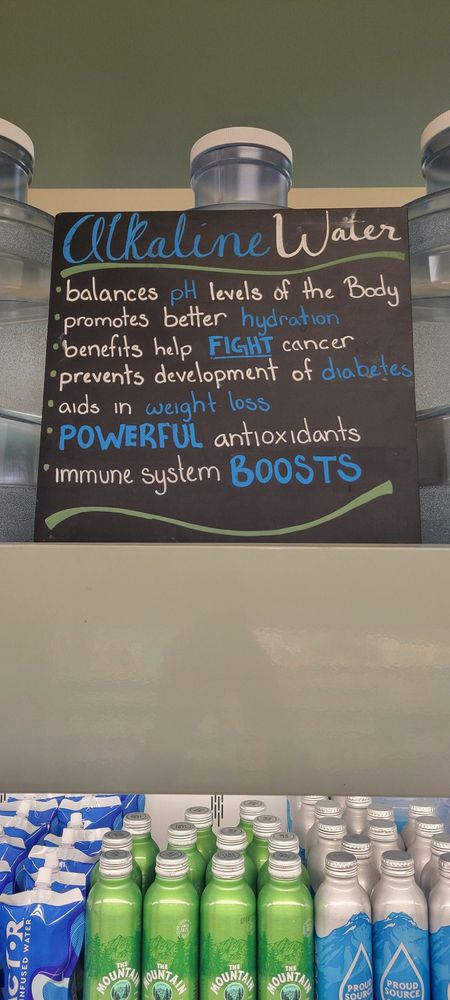 Alkaline Water
• balances pH levels of the Body
• promotes better hydration
• benefits help FIGHT cancer
• prevents development of diabetes
• aids in weight loss
• POWERFUL antioxidants
• immune system BOOSTS
CTOR
INFUSED WATER
THE
MOUNTAIN
THE
MOUNTAIN
THE
MOUNTAIN
THE
MOUNTAIN
PROUD
SOURCE
PROUD
SOURCE